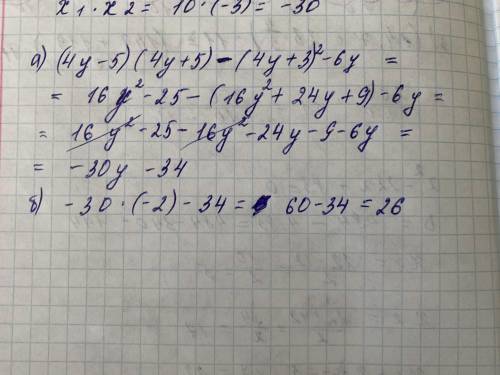 x₁ · x₂ = 10 · (-3) = -30
а) (4y-5)(4y+5) - (4y+3)²-6y =
= 16y²-25-(16y²+24y+9)-6y =
= 16y²-25-16y²-24y-9-6y =
= -30y -34
б) -30·(-2)-34= 60-34=26